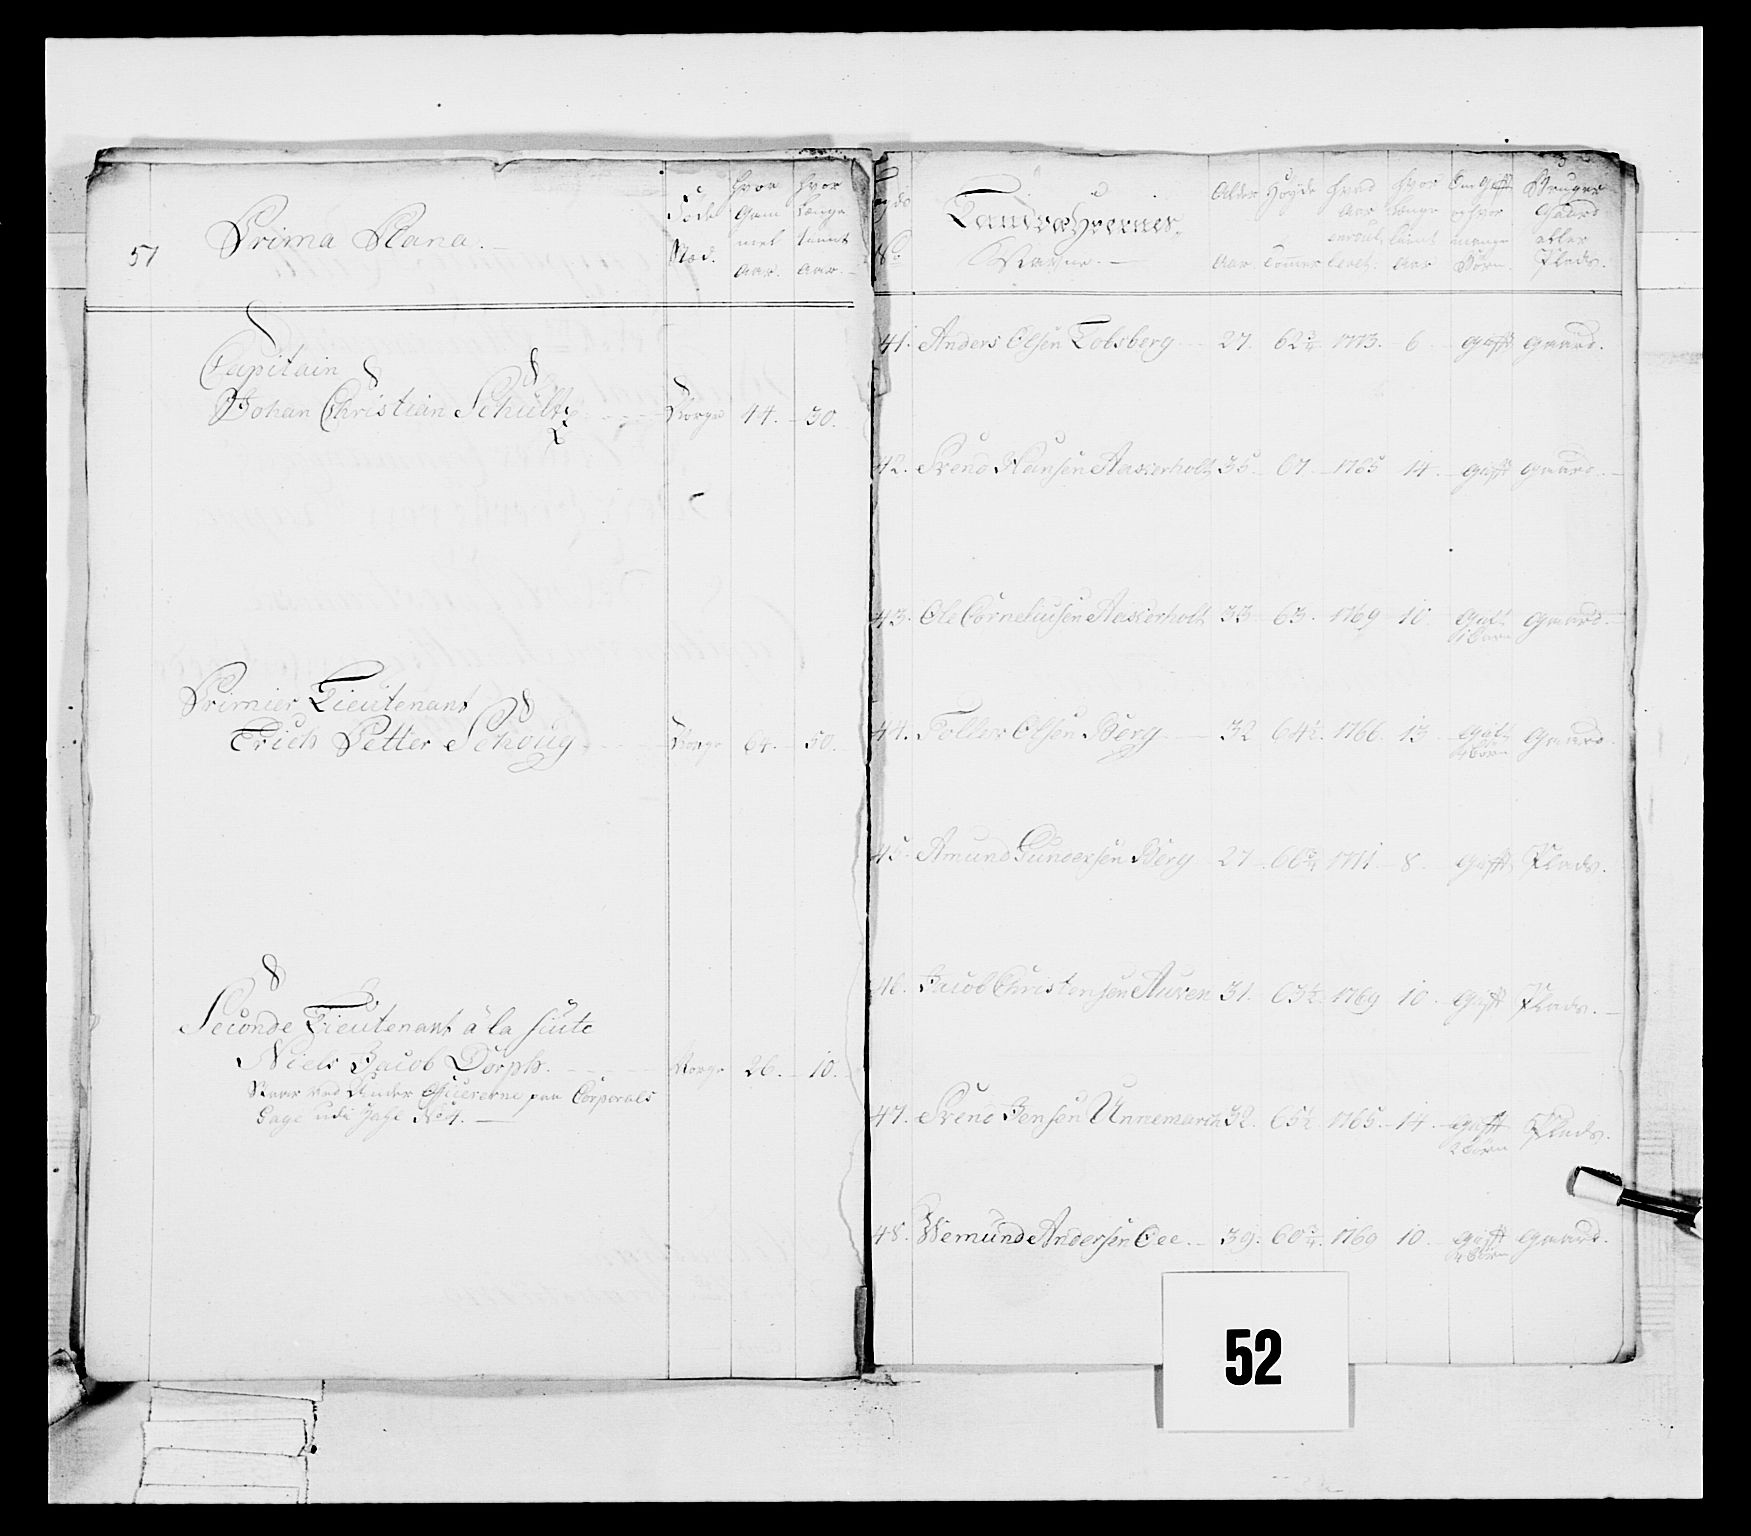 51
Prima Plana.
Föde Stæd.
hvor Gammel Aar.
hvor Længe tient Aar.
Capitain
Johan Christian Schultz Norge 44. 30.
Primier Lieutenant
Erich Petter Schoug Norge 64. 50.
Seconde Lieutenant á la suite
Niels Jacob Dorph. Norge 26. 10.
Staar ved Under Officererne paa Corporals
Gage udi No 4.
No
Landværnernes
Navne.
Alder Aar
Høyde Tommer
hvad Aar enroul. levet.
hvor Længe tient Aar
Om Gift og hvor mange Börn.
Bruger Gaard eller Plads.
41. Anders Olsen Tobsberg 27. 62 3/4 1773. 6 Gift Gaard.
42. Svend Hansen Aaserholt 35. 67. 1765 14. Gift Gaard.
43. Ole Corneliusen Aaserholt 33 63. 1769 10. Gift Gaard.
1 Barn
44. Toller Olsen Berg 32 64 1/2. 1766. 13 Gift Gaard.
4 Börn
45. Amund Gundersen Berg 27 66 3/4 1771. 8. Gift Plads.
46. Jacob Christensen Auven 31. 63 1/2 1769 10. Gift Plads.
47. Svend Jensen Unnemarch 32. 65 1/2. 1765. 14. Gift Plads.
2 Börn
48. Wemund Andersen Eee. 39. 60 3/4. 1769 10. Gift Gaard.
4 Börn
52